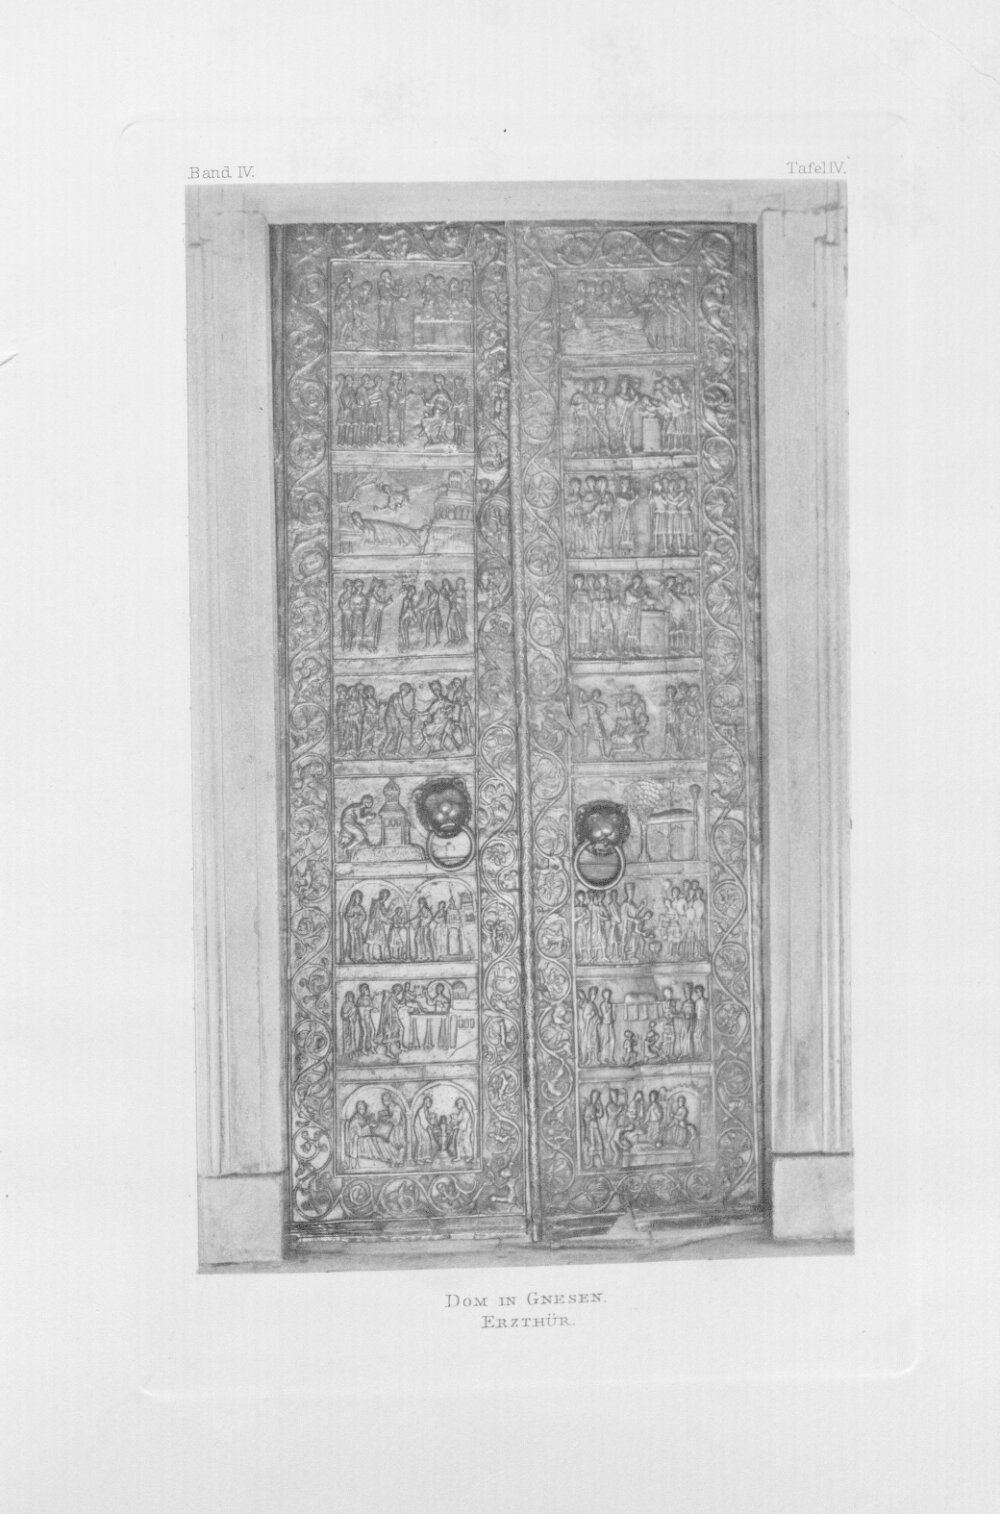 Band IV.
Tafel IV.
DOM IN GNESEN.
ERZTHÜR.